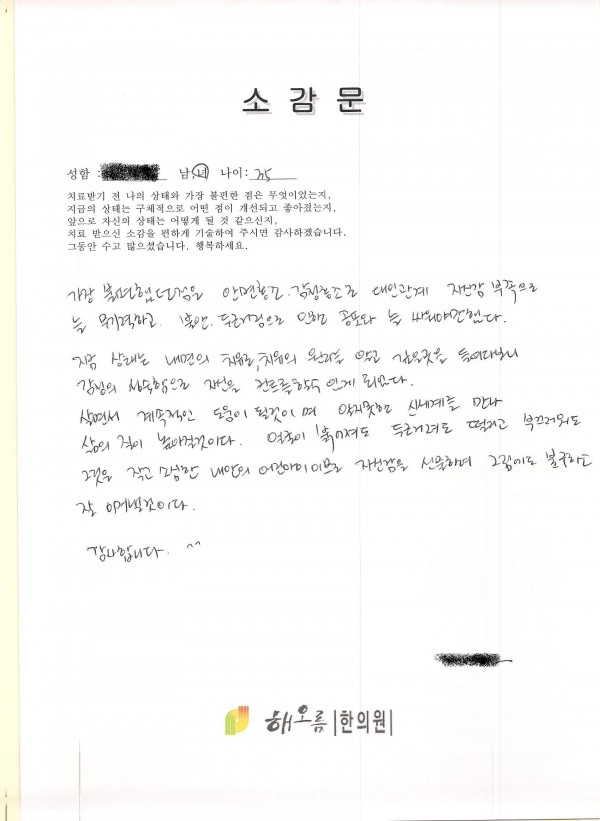 소감문
성함 : 남,녀 나이: 35
치료받기 전 나의 상태와 가장 불편한 점은 무엇이었는지,
지금의 상태는 구체적으로 어떤 점이 개선되고 좋아졌는지,
앞으로 자신의 상태는 어떻게 될 것 같으신지,
치료 받으신 소감을 편하게 기술하여 주시면 감사하겠습니다.
그동안 수고 많으셨습니다. 행복하세요.
가장 불편했던점은 안면홍조. 감정홍조로 대인관계 자신감 부족으로
늘 무기력하고. 불안. 두근거림으로 인한 공포와 늘 싸워야만했다.
지금 상태는 내면의 치유로, 치유의 원리를 알고 깊은곳을 들여다보니
감정의 성숙함으로 자신을 컨트롤할수 있게 되었다.
살면서 계속적인 도움이 될것이며 알지못한 신세계를 만나
삶의 질이 높아질것이다. 얼굴이 붉어져도 두근거려도 떨리고 부끄러워도
그것은 작고 소중한 내안의 어린아이이므로 자신감을 선물하며 그럼에도 불구하고
잘 이겨낼것이다.
감사합니다. ^^
해오름 |한의원|